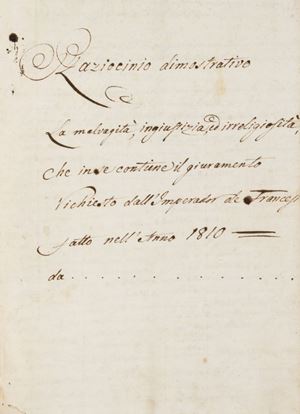 Raziocinio dimostrativo
La malvagità, ingiustizia, ed irreligiosità
che in se contiene il giuramento
richiesto dall'Imperador de Francesi
fatto nell'Anno 1810 ——
da . . . . . . . . . . . . . . .